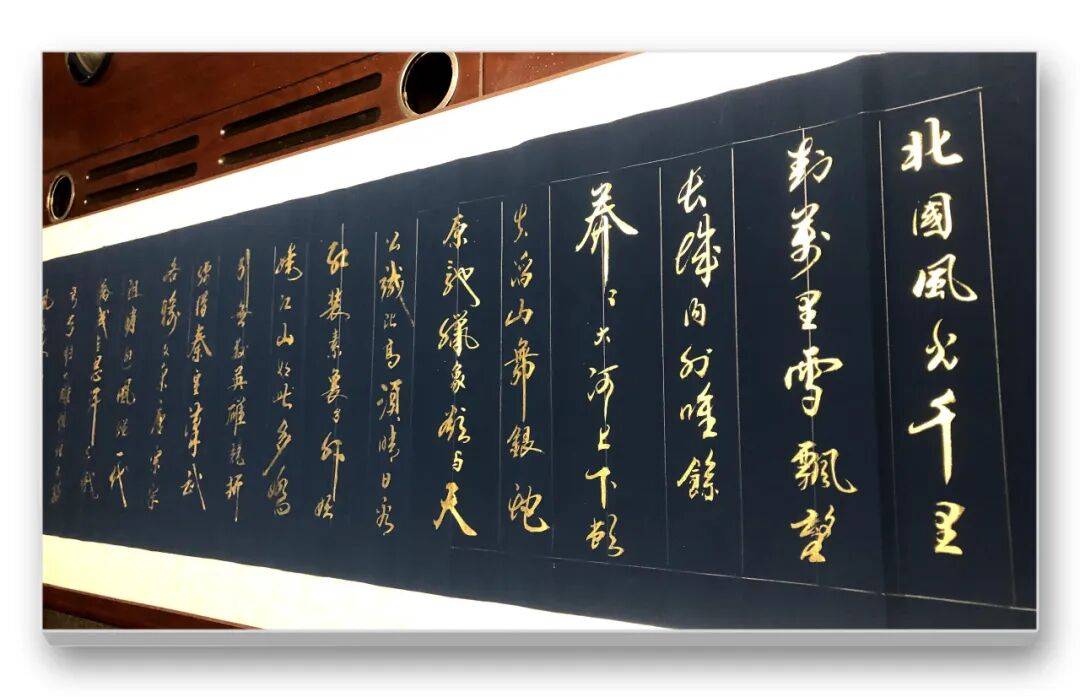 北國風光千里
封萬里雪飄望
長城內外唯餘
莽〻大河上下頓
失滔山舞銀蛇
原馳蠟象欲與天
公試比高須晴日看
紅裝素裹分外妖
嬈江山如此多嬌
引無數英雄競折
腰惜秦皇漢武
略輸文采唐宗宋
祖稍遜風騷一代